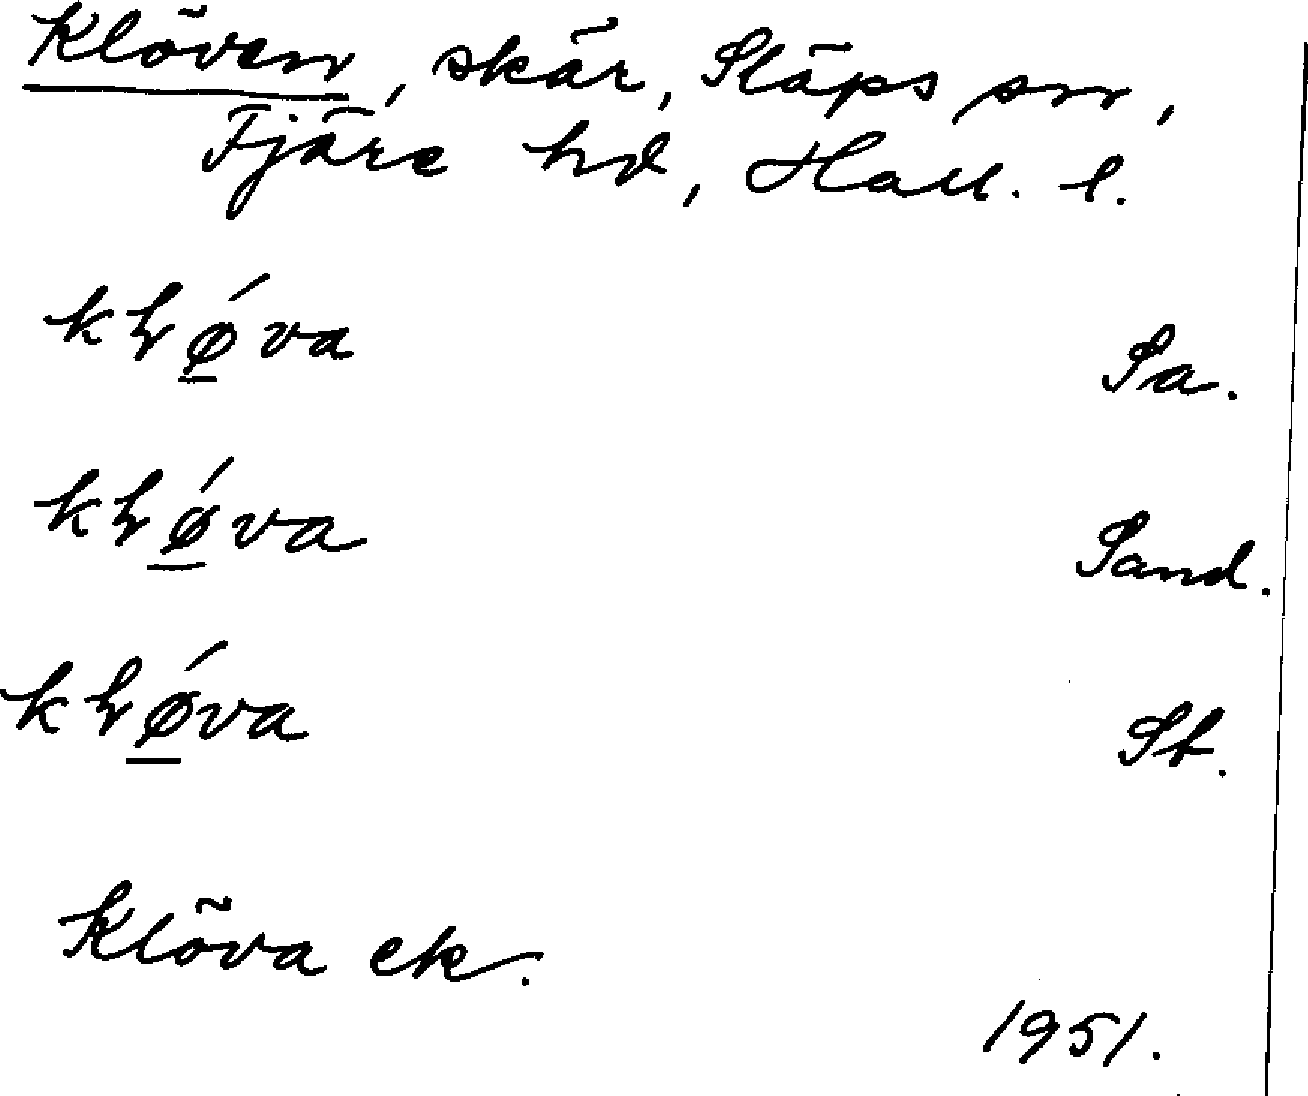 Klöven, skär, Släps sn,
Fjäre hd, Hall. l.
kłǿva Sa.
kłǿva Sand.
kłǿva St.
Klöva ek.
1951.